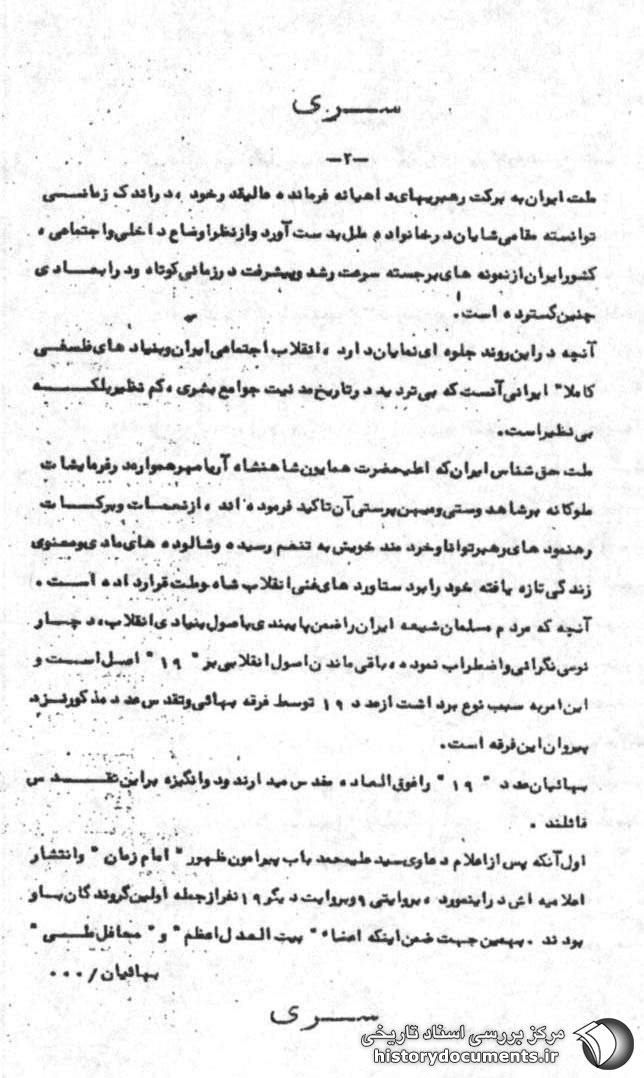 ســـری
—۲—
ملت ایران به برکت رهبریهای داهیانه فرمانده عالیقدر خود ، در اندک زمانـــی
توانسته مقامی شایان در خانواده ملل بدست آورد و از نظر اوضاع داخلی و اجتماعی ،
کشور ایران از نمونه های برجسته سرعت رشد و پیشرفت در زمانی کوتاه و در ابعـــادی
چنین گسترده است .
آنچه در این روند جلوه ای نمایان دارد ، انقلاب اجتماعی ایران و بنیاد های فلسفـی
کاملا" ایرانی آنست که بی تردید در تاریخ مدنیت جوامع بشری ، کم نظیر بلکــــه
بی نظیر است .
ملت حق شناس ایران که اعلیحضرت همایون شاهنشاه آریامهر همواره در فرمایشات
ملوکانه بر شاهدوستی و میهن پرستی آن تاکید فرموده اند ، از نعمـات و برکـــات
رهنمود های رهبر توانا و خردمند خویش به تنعم رسیده و شالوده های مادی و معنوی
زندگی تازه یافته خود را بر دستاورد های غنی انقلاب شاه و ملت قرار داده اســـت .
آنچه که مردم مسلمان شیعه ایران را ضمن پایبندی باصول بنیادی انقلاب ، دچـــار
نوعی نگرانی و اضطراب نموده ، باقی ماندن اصول انقلابی بر " ۱۹ " اصل اســت و
این امر به سبب نوع برداشت از عدد ۱۹ توسط فرقه بهائی و تقدس عدد مذکور نــزد
پیروان این فرقه است .
بهائیان عدد " ۱۹ " را فوق العاده مقدس میدارند و دو انگیزه بر این تقـــدس
قائلند .
اول آنکه پس از اعلام دعاوی سید علیمحمد باب پیرامون ظهور " امام زمان " و انتشار
اعلامیه اش در اینمورد ، بروایتی ۹ و بروایت دیگر ۱۹ نفر از جمله اولین گروندگان با و
بودند . بهمین جهت ضمن اینکه اعضاء " بیت العدل اعظم " و " محافل ملــی "
بهائیان / ...
ســـری
مرکز بررسی اسناد تاریخی
historydocuments.ir